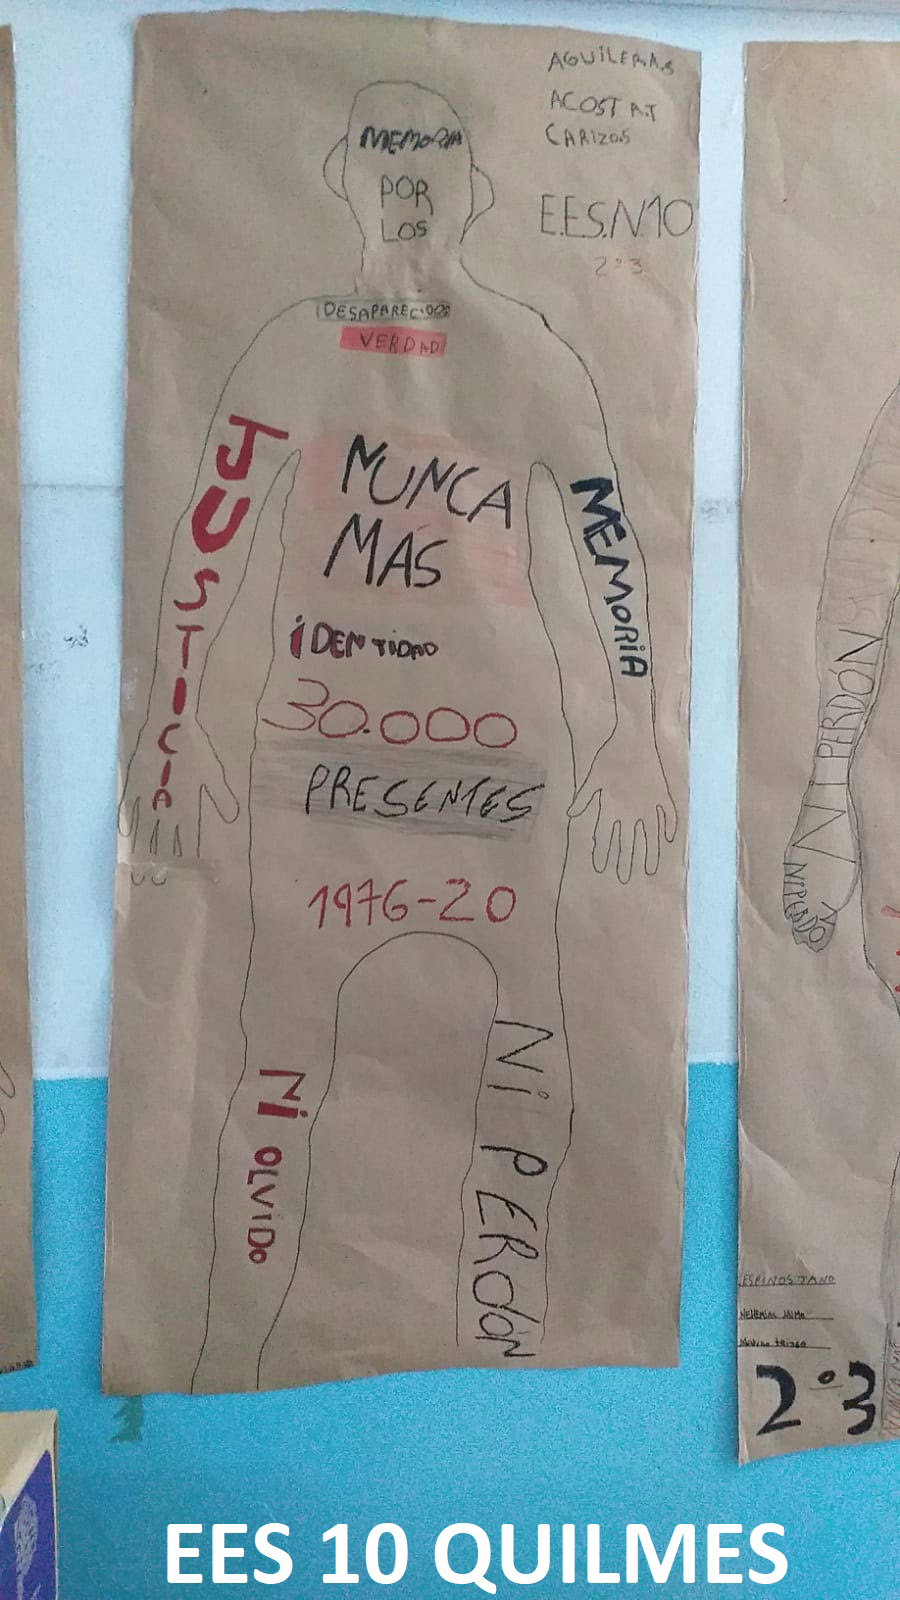 AGUILERA.S
ACOSTA.T
CARIZO.S
E.E.S.N10
2°3
MEMORIA
POR
LOS
DESAPARECIDOS
VERDAD
JUSTICIA
NUNCA
MÁS
MEMORIA
iDENTIDAD
30.000
PRESENTES
1976-20
Ni OLViDO
Ni PERDÓN
Ni PERDÓN
NI PERDON
ESPINOS JANO
2°3
EES 10 QUILMES